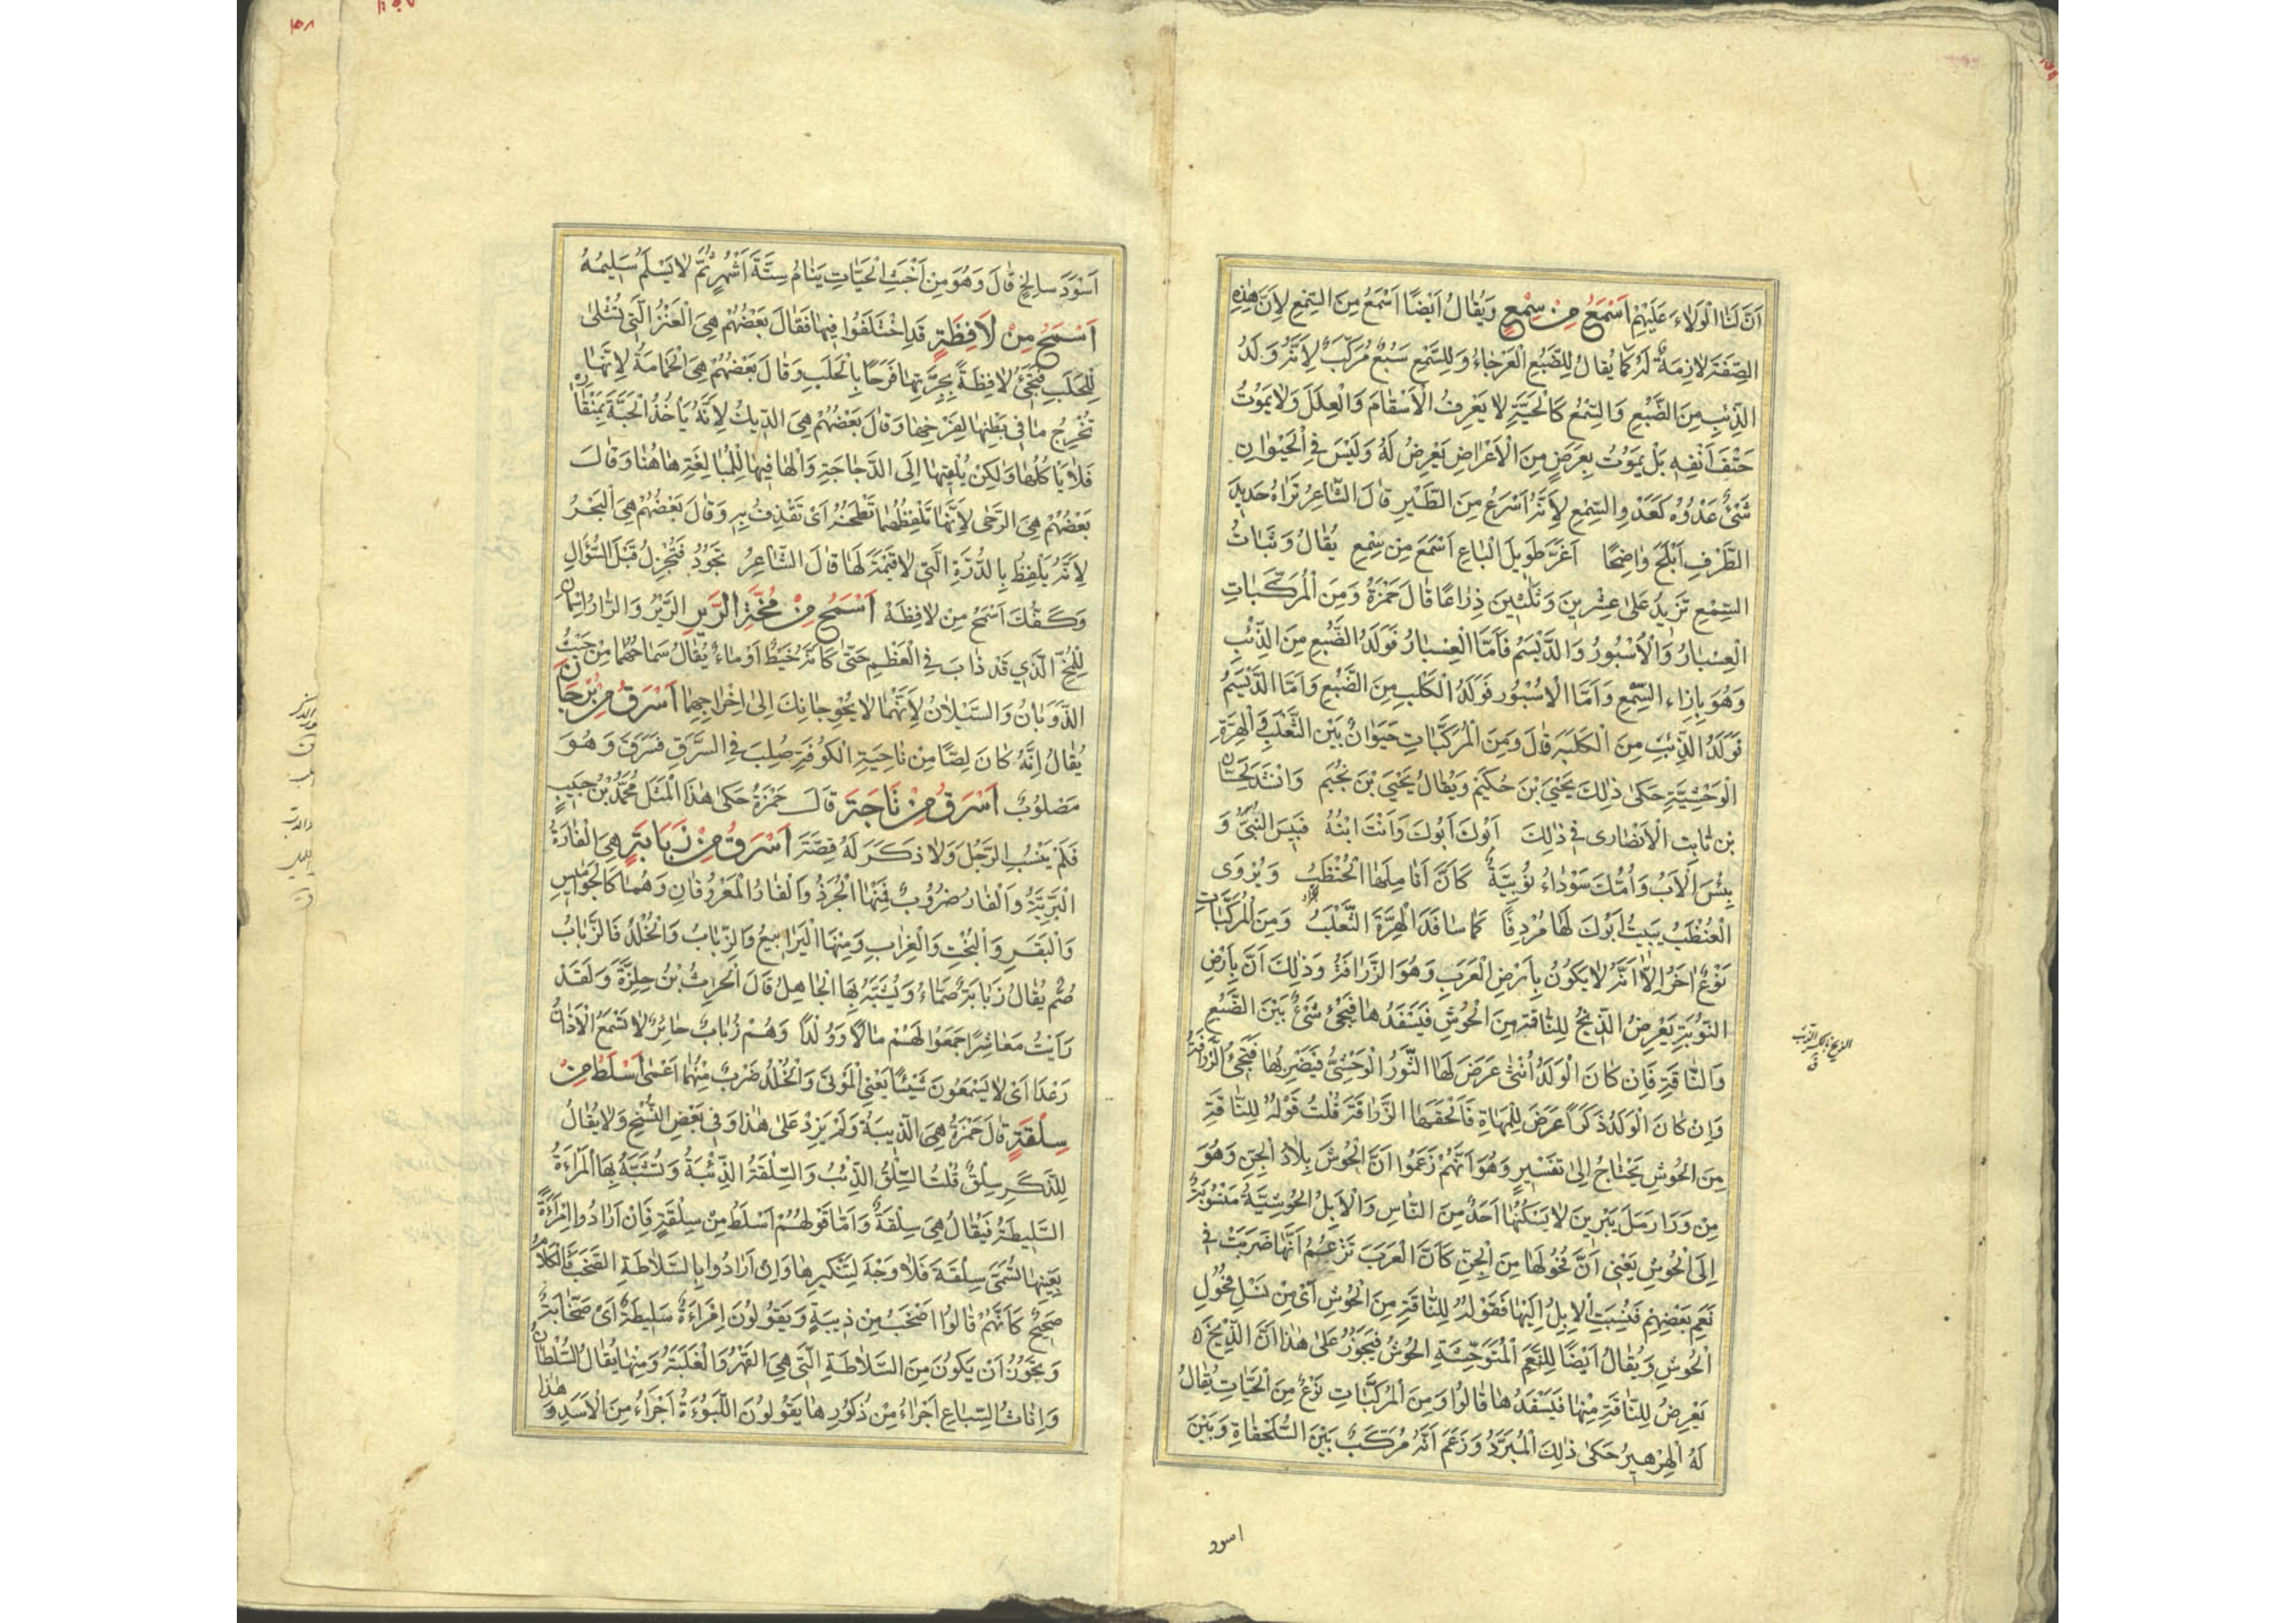 اَنَّ لَنَا الْوَلَاءَ عَلَيْهِمْ اَسْمَعُ مِنْ سِمْعٍ وَيُقَالُ اَيْضًا اَسْمَعُ مِنَ السِّمْعِ لِاَنَّ هٰذِهِ
الصِّفَةَ لَازِمَةٌ لَهُ كَمَا يُقَالُ لِلضَّبُعِ الْعَرْجَاءُ وَالسِّمْعُ سَبُعٌ مُرَكَّبٌ لِاَنَّهُ وَلَدُ
الذِّئْبِ مِنَ الضَّبُعِ وَالسِّمْعُ كَالْحَيَّةِ لَا يَعْرِفُ الْاَسْقَامَ وَالْعِلَلَ وَلَا يَمُوتُ
حَتْفَ اَنْفِهِ بَلْ يَمُوتُ بِعَرَضٍ مِنَ الْاَعْرَاضِ يَعْرِضُ لَهُ وَلَيْسَ فِي الْحَيْوَانِ
شَيْءٌ عَدْوُهُ كَعَدْوِ السِّمْعِ لِاَنَّهُ اَسْرَعُ مِنَ الطَّيْرِ قَالَ الشَّاعِرُ تَرَاهُ حَدِيدَ
الطَّرْفِ اَبْلَجَ وَاضِحًا اَغَرَّ طَوِيلَ الْبَاعِ اَسْمَعَ مِنْ سِمْعٍ يُقَالُ وَثَبَاتُ
السِّمْعِ تَزِيدُ عَلَى عِشْرِينَ وَثَلٰثِينَ ذِرَاعًا قَالَ حَمْزَةُ وَمِنَ الْمُرَكَّبَاتِ
الْعِسْبَارُ وَالْاُسْبُورُ وَالدَّيْسَمُ فَاَمَّا الْعِسْبَارُ فَوَلَدُ الضَّبُعِ مِنَ الذِّئْبِ
وَهُوَ بِاِزَاءِ السِّمْعِ وَاَمَّا الْاُسْبُورُ فَوَلَدُ الْكَلْبِ مِنَ الضَّبُعِ وَاَمَّا الدَّيْسَمُ
فَوَلَدُ الذِّئْبِ مِنَ الْكَلْبَةِ قَالَ وَمِنَ الْمُرَكَّبَاتِ حَيَوَانٌ بَيْنَ الثَّعْلَبِ وَالْهِرَّةِ
الْوَحْشِيَّةِ حَكٰى ذٰلِكَ يَحْيَى بْنُ حُكَيْمٍ وَيُقَالُ يَحْيَى بْنُ نُجَيْمٍ وَاَنْشَدَ لِحَسَّانَ
بْنِ ثَابِتٍ الْاَنْصَارِى فِي ذٰلِكَ اَبُوكَ اَبُوكَ وَاَنْتَ ابْنُهُ فَبِئْسَ الْبُنَيُّ وَ
بِئْسَ الْاَبُ وَاُمُّكَ سَوْدَاءُ نُوبِيَّةٌ كَاَنَّ اَنَامِلَهَا الْحُنْظَبُ وَيُرْوَى
الْعُنْظَبُ يَبِيتُ اَبُوكَ لَهَا مُرْدِفًا كَمَا سَافَدَ الْهِرَّةَ الثَّعْلَبُ وَمِنَ الْمُرَكَّبَاتِ
نَوْعٌ اٰخَرُ اِلَّا اَنَّهُ لَا يَكُونُ بِاَرْضِ الْعَرَبِ وَهُوَ الزَّرَافَةُ وَذٰلِكَ اَنَّ بِاَرْضِ
النُّوبَةِ يَعْرِضُ الذِّيخُ لِلنَّاقَةِ مِنَ الْحُوشِ فَيَسْفَدُهَا فَيَجِيْءُ شَيْءٌ بَيْنَ الضَّبُعِ
وَالنَّاقَةِ فَاِنْ كَانَ الْوَلَدُ اُنْثٰى عَرَضَ لَهَا الثَّوْرُ الْوَحْشِيُّ فَيَضْرِبُهَا فَتَجِيْءُ الزَّرَافَةُ
وَاِنْ كَانَ الْوَلَدُ ذَكَرًا عَرَضَ لِلْمَهَاةِ فَاَلْقَحَهَا الزَّرَافَةَ قُلْتُ قَوْلُهُ لِلنَّاقَةِ
مِنَ الْحُوشِ يَحْتَاجُ اِلَى تَفْسِيرٍ وَهُوَ اَنَّهُمْ زَعَمُوا اَنَّ الْحُوشَ بِلَادُ الْجِنِّ وَهُوَ
مِنْ وَرَا رَمْلِ يَبْرِينَ لَا يَسْكُنُهَا اَحَدٌ مِنَ النَّاسِ وَالْاِبِلُ الْحُوشِيَّةُ مَنْسُوبَةٌ
اِلَى الْحُوشِ يَعْنِي اَنَّ فُحُولَهَا مِنَ الْجِنِّ كَاَنَّ الْعَرَبَ تَزْعُمُ اَنَّهَا ضَرَبَتْ فِي
نَعَمِ بَعْضِهِمْ فَنُسِبَتِ الْاِبِلُ اِلَيْهَا فَقَوْلُهُ لِلنَّاقَةِ مِنَ الْحُوشِ اَيْ مِنْ نَسْلِ فُحُولِ
الْحُوشِ وَيُقَالُ اَيْضًا لِلنَّعَمِ الْمُتَوَحِّشَةِ الْحُوشُ فَيَجُوزُ عَلَى هٰذَا اَنَّ الذِّيخَ
يَعْرِضُ لِلنَّاقَةِ مِنْهَا فَيَسْفَدُهَا قَالُوا وَمِنَ الْمُرَكَّبَاتِ نَوْعٌ مِنَ الْحَيَّاتِ يُقَالُ
لَهُ الْهِرْهِيرُ حَكٰى ذٰلِكَ الْمُبَرَّدُ وَزَعَمَ اَنَّهُ مُرَكَّبٌ بَيْنَ السُّلَحْفَاةِ وَبَيْنَ
اسود
اَسْوَدَ سَالِخٍ قَالَ وَهُوَ مِنْ اَخْبَثِ الْحَيَّاتِ يَنَامُ سِتَّةَ اَشْهُرٍ ثُمَّ لَا يَسْلَمُ سَلِيمُهُ
اَسْمَحُ مِنْ لَافِظَةٍ قَدِ اخْتَلَفُوا فِيهَا فَقَالَ بَعْضُهُمْ هِيَ الْعَنْزُ الَّتِي تُشْلٰى
لِلْحَلَبِ فَتَجِيْءُ لَافِظَةً بِجِرَّتِهَا فَرَحًا بِالْحَلَبِ وَقَالَ بَعْضُهُمْ هِيَ الْحَمَامَةُ لِاَنَّهَا
تُخْرِجُ مَا فِي بَطْنِهَا لِفَرْخِهَا وَقَالَ بَعْضُهُمْ هِيَ الدِّيكُ لِاَنَّهُ يَاْخُذُ الْحَبَّةَ بِمِنْقَارِهِ
فَلَا يَاكُلُهَا وَلٰكِنْ يُلْقِيهَا اِلَى الدَّجَاجَةِ وَالْهَا فِيهَا لِلْمُبَالِغَةِ هَاهُنَا وَقَالَ
بَعْضُهُمْ هِيَ الرَّحٰى لِاَنَّهَا تَلْفِظُ مَا تَطْحَنُهُ اَيْ تَقْذِفُ بِهِ وَقَالَ بَعْضُهُمْ هِيَ الْبَحْرُ
لِاَنَّهُ يَلْفِظُ بِالدُّرَّةِ الَّتِي لَا قِيْمَةَ لَهَا قَالَ الشَّاعِرُ تَجُودُ فَتُجْزِلُ قَبْلَ السُّؤَالِ
وَكَفُّكَ اَسْمَحُ مِنْ لَافِظَهْ اَسْمَحُ مِنْ مُخَّةِ الرَّيْرِ الرَّيْرُ وَالرَّارُ اِسْمَانِ
لِلْمُخِّ الَّذِي قَدْ ذَابَ فِي الْعَظْمِ حَتّٰى كَاَنَّهُ خَيْطٌ اَوْ مَاءٌ يُقَالُ سَمَاحُهُمَا مِنْ حَيْثُ
الذَّوَبَانُ وَالسَّيْلَانُ لِاَنَّهُمَا لَا يُحْوِجَانِكَ اِلَى اِخْرَاجِهِمَا اَسْرَقُ مِنْ بُرْجَانَ
يُقَالُ اِنَّهُ كَانَ لِصًّا مِنْ نَاحِيَةِ الْكُوفَةِ صُلِبَ فِي السَّرَقِ فَسَرَقَ وَهُوَ
مَصْلُوبٌ اَسْرَقُ مِنْ تَاجَةَ قَالَ حَمْزَةُ حَكٰى هٰذَا الْمَثَلَ مُحَمَّدُ بْنُ حَبِيبٍ
فَلَمْ يَنْسُبِ الرَّجُلَ وَلَا ذَكَرَ لَهُ قِصَّةَ اَسْرَقُ مِنْ زَبَابَةٍ هِيَ الْفَارَةُ
الْبَرِّيَّةُ وَالْفَارُ ضُرُوبٌ فَمِنْهَا الْجُرَذُ وَالْفَارُ الْمَعْرُوفَانِ وَهُمَا كَالْجَوَامِيسِ
وَالْبَقَرِ وَالْبُخْتِ وَالْعِرَابِ وَمِنْهَا الْيَرَابِيعُ وَالزَّبَابُ وَالْخُلْدُ فَالزَّبَابُ
صُمٌّ يُقَالُ زَبَابَةٌ صَمَّاءُ وَيُشَبَّهُ بِهَا الْجَاهِلُ قَالَ الْحَرِثُ بْنُ حِلِزَّةَ وَلَقَدْ
رَاَيْتُ مَعَاشِرًا جَمَعُوا لَهُمْ مَالًا وَوُلْدًا وَهُمْ زَبَابٌ حَائِرٌ لَا تَسْمَعُ الْاٰذَانُ
رَعْدًا اَيْ لَا يَسْمَعُونَ شَيْئًا يَعْنِي الْمَوْتٰى وَالْخُلْدُ ضَرْبٌ مِنْهَا اَعْمٰى اَسْلَطُ مِنْ
سِلْقَةٍ قَالَ حَمْزَةُ هِيَ الذِّيبَةُ وَلَمْ يَزِدْ عَلَى هٰذَا وَفِي بَعْضِ النُّسَخِ وَلَا يُقَالُ
لِلذَّكَرِ سِلْقٌ قُلْتُ السِّلْقُ الذِّئْبُ وَالسِّلْقَةُ الذِّئْبَةُ وَتُشَبَّهُ بِهَا الْمَرْاَةُ
السَّلِيطَةُ فَيُقَالُ هِيَ سِلْقَةٌ وَاَمَّا قَوْلُهُمْ اَسْلَطُ مِنْ سِلْقَةٍ فَاِنْ اَرَادُوا امْرَاَةً
بِعَيْنِهَا تُسَمّٰى سِلْقَةَ فَلَا وَجْهَ لِتَنْكِيرِهَا وَاِنْ اَرَادُوا بِالسَّلَاطَةِ الصَّخَبَ فَالْكَلَامُ
صَحِيحٌ كَاَنَّهُمْ قَالُوا اَصْخَبُ مِنْ ذِيبَةٍ وَيَقُولُونَ اِمْرَاَةٌ سَلِيطَةٌ اَيْ صَخَّابَةٌ
وَيَجُوزُ اَنْ يَكُونَ مِنَ السَّلَاطَةِ الَّتِي هِيَ الْقَهْرُ وَالْغَلَبَةُ وَمِنْهَا يُقَالُ السُّلْطَانُ هٰذَا
وَاِنَاثُ السِّبَاعِ اَجْرَاءُ مِنْ ذُكُورِهَا يَقُولُونَ اللَّبُوءَةُ اَجْرَاءُ مِنَ الْاَسَدِ وَ